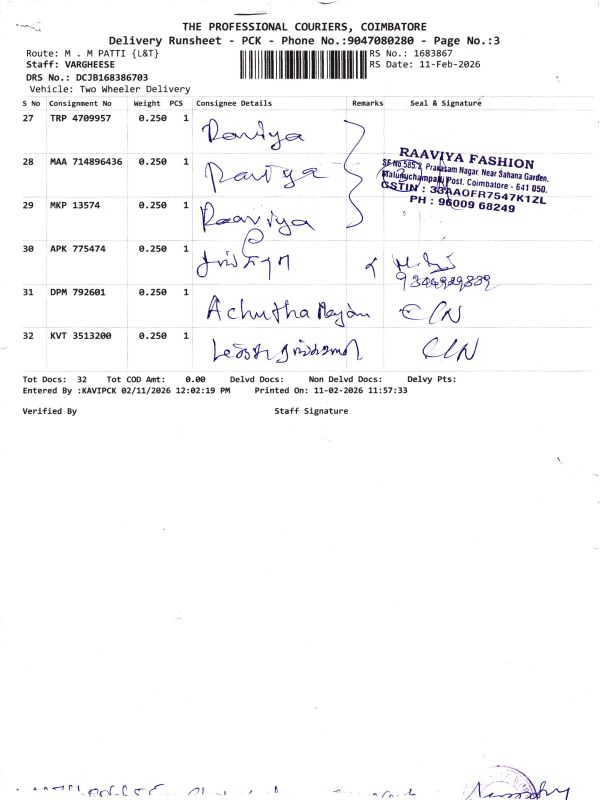 THE PROFESSIONAL COURIERS, COIMBATORE
Delivery Runsheet - PCK - Phone No.:9047080280 - Page No.:3
Route: M . M PATTI {L&T} RS No.: 1683867
Staff: VARGHEESE RS Date: 11-Feb-2026
DRS No.: DCJB168386703
Vehicle: Two Wheeler Delivery
S No Consignment No Weight PCS Consignee Details Remarks Seal & Signature
27 TRP 4709957 0.250 1 Raviya
28 MAA 714896436 0.250 1 Raviya
RAAVIYA FASHION
SF No.585/2, Prakasam Nagar, Near Sahana Garden,
Malumichampatti Post, Coimbatore - 641 050.
GSTIN : 33AAOFR7547K1ZL
PH : 96009 68249
29 MKP 13574 0.250 1 Raaviya
30 APK 775474 0.250 1
31 DPM 792601 0.250 1 Achutha
32 KVT 3513200 0.250 1
Tot Docs: 32 Tot COD Amt: 0.00 Delvd Docs: Non Delvd Docs: Delvy Pts:
Entered By :KAVIPCK 02/11/2026 12:02:19 PM Printed On: 11-02-2026 11:57:33
Verified By Staff Signature